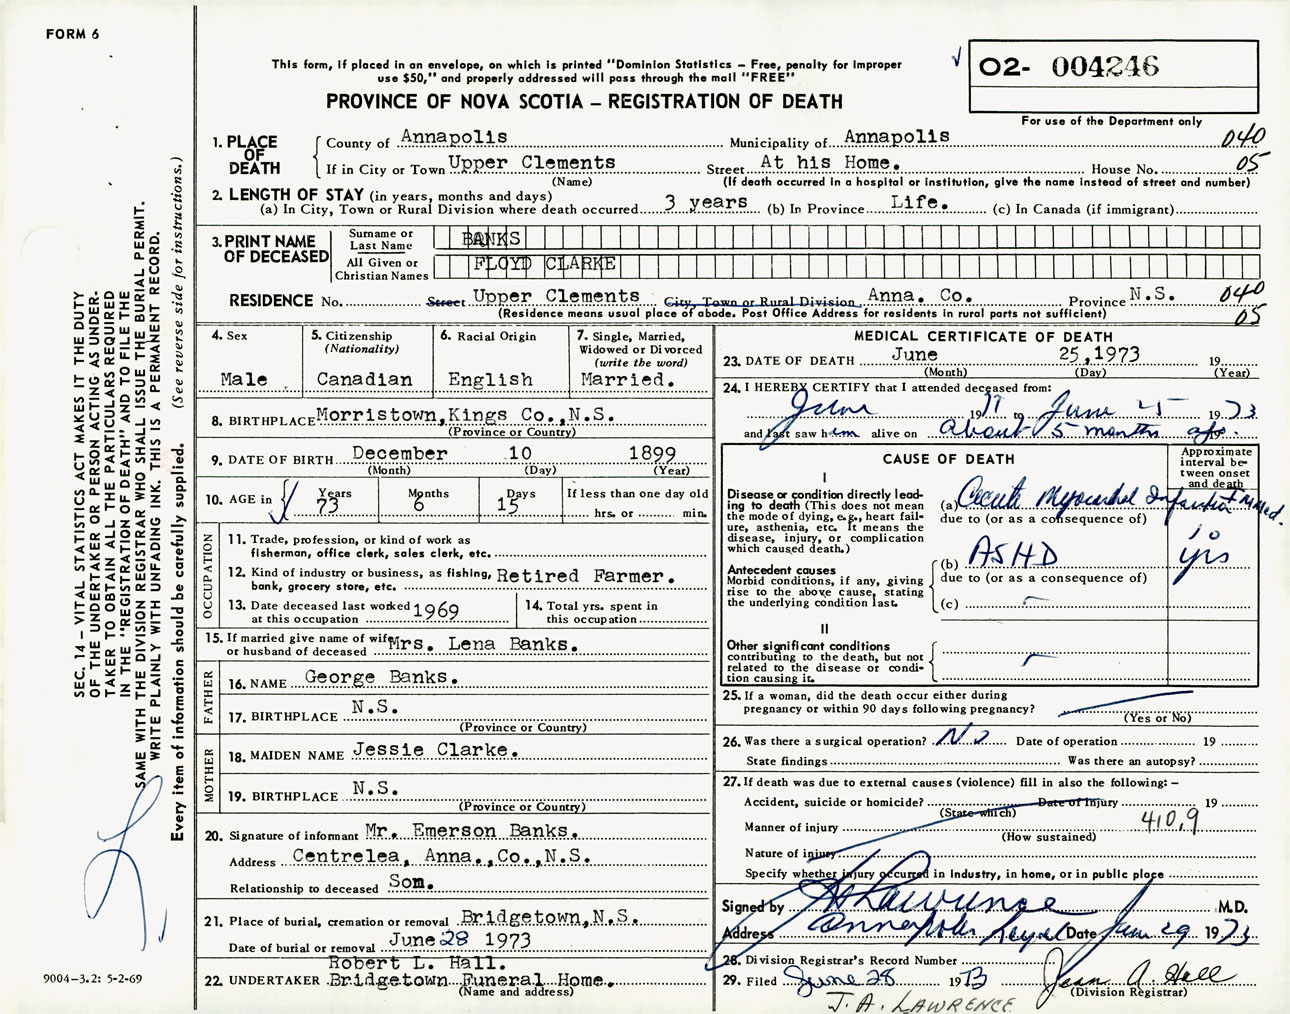 FORM 6
This form, if placed in an envelope, on which is printed "Dominion Statistics – Free, penalty for improper
use $50," and properly addressed will pass through the mail "FREE"
PROVINCE OF NOVA SCOTIA – REGISTRATION OF DEATH
O2- 004246
For use of the Department only
1. PLACE OF DEATH
County of Annapolis Municipality of Annapolis 040
If in City or Town Upper Clements Street At his Home. House No. 05
(Name) (If death occurred in a hospital or institution, give the name instead of street and number)
2. LENGTH OF STAY (in years, months and days)
(a) In City, Town or Rural Division where death occurred 3 years (b) In Province Life. (c) In Canada (if immigrant)
3. PRINT NAME OF DECEASED
Surname or Last Name BANKS
All Given or Christian Names FLOYD CLARKE
RESIDENCE No. Street Upper Clements City, Town or Rural Division Anna. Co. Province N.S. 040
(Residence means usual place of abode. Post Office Address for residents in rural parts not sufficient) 05
4. Sex
Male
5. Citizenship
(Nationality)
Canadian
6. Racial Origin
English
7. Single, Married,
Widowed or Divorced
(write the word)
Married.
8. BIRTHPLACE Morristown,Kings Co.,N.S.
(Province or Country)
9. DATE OF BIRTH December 10 1899
(Month) (Day) (Year)
10. AGE in Years 73 Months 6 Days 15 If less than one day old
hrs. or min.
OCCUPATION
11. Trade, profession, or kind of work as
fisherman, office clerk, sales clerk, etc.
12. Kind of industry or business, as fishing, Retired Farmer.
bank, grocery store, etc.
13. Date deceased last worked 1969
at this occupation
14. Total yrs. spent in
this occupation
15. If married give name of wife Mrs. Lena Banks.
or husband of deceased
FATHER
16. NAME George Banks.
17. BIRTHPLACE N.S.
(Province or Country)
MOTHER
18. MAIDEN NAME Jessie Clarke.
19. BIRTHPLACE N.S.
(Province or Country)
20. Signature of informant Mr. Emerson Banks.
Address Centrelea, Anna.,Co.,N.S.
Relationship to deceased Son.
21. Place of burial, cremation or removal Bridgetown,N.S.
Date of burial or removal June 28 1973
Robert L. Hall.
22. UNDERTAKER Bridgetown Funeral Home.
(Name and address)
MEDICAL CERTIFICATE OF DEATH
23. DATE OF DEATH June 25,1973 19
(Month) (Day) (Year)
24. I HEREBY CERTIFY that I attended deceased from:
June 1971 to June 25 1973
and last saw him alive on about 5 months ago. 19
CAUSE OF DEATH
Approximate
interval be-
tween onset
and death
I
Disease or condition directly lead-
ing to death (This does not mean
the mode of dying, e.g., heart fail-
ure, asthenia, etc. It means the
disease, injury, or complication
which caused death.)
(a) Acute Myocardial Infarction Immed.
due to (or as a consequence of)
Antecedent causes
Morbid conditions, if any, giving
rise to the above cause, stating
the underlying condition last.
(b) ASHD 10 yrs
due to (or as a consequence of)
(c)
II
Other significant conditions
contributing to the death, but not
related to the disease or condi-
tion causing it.
25. If a woman, did the death occur either during
pregnancy or within 90 days following pregnancy?
(Yes or No)
26. Was there a surgical operation? No Date of operation 19
State findings Was there an autopsy?
27. If death was due to external causes (violence) fill in also the following:–
Accident, suicide or homicide? Date of Injury 19
(State which)
Manner of injury 410.9
(How sustained)
Nature of injury
Specify whether injury occurred in industry, in home, or in public place
Signed by Lawrence M.D.
Address Annapolis Royal Date June 29 1973
28. Division Registrar's Record Number
29. Filed June 28 1973 Jean A. Hall
(Division Registrar)
J.A. LAWRENCE
SEC. 14 – VITAL STATISTICS ACT MAKES IT THE DUTY
OF THE UNDERTAKER OR PERSON ACTING AS UNDER-
TAKER TO OBTAIN ALL THE PARTICULARS REQUIRED
IN THE "REGISTRATION OF DEATH" AND TO FILE THE
SAME WITH THE DIVISION REGISTRAR WHO SHALL ISSUE THE BURIAL PERMIT.
WRITE PLAINLY WITH UNFADING INK. THIS IS A PERMANENT RECORD.
Every item of information should be carefully supplied. (See reverse side for instructions.)
9004–3.2: 5-2-69